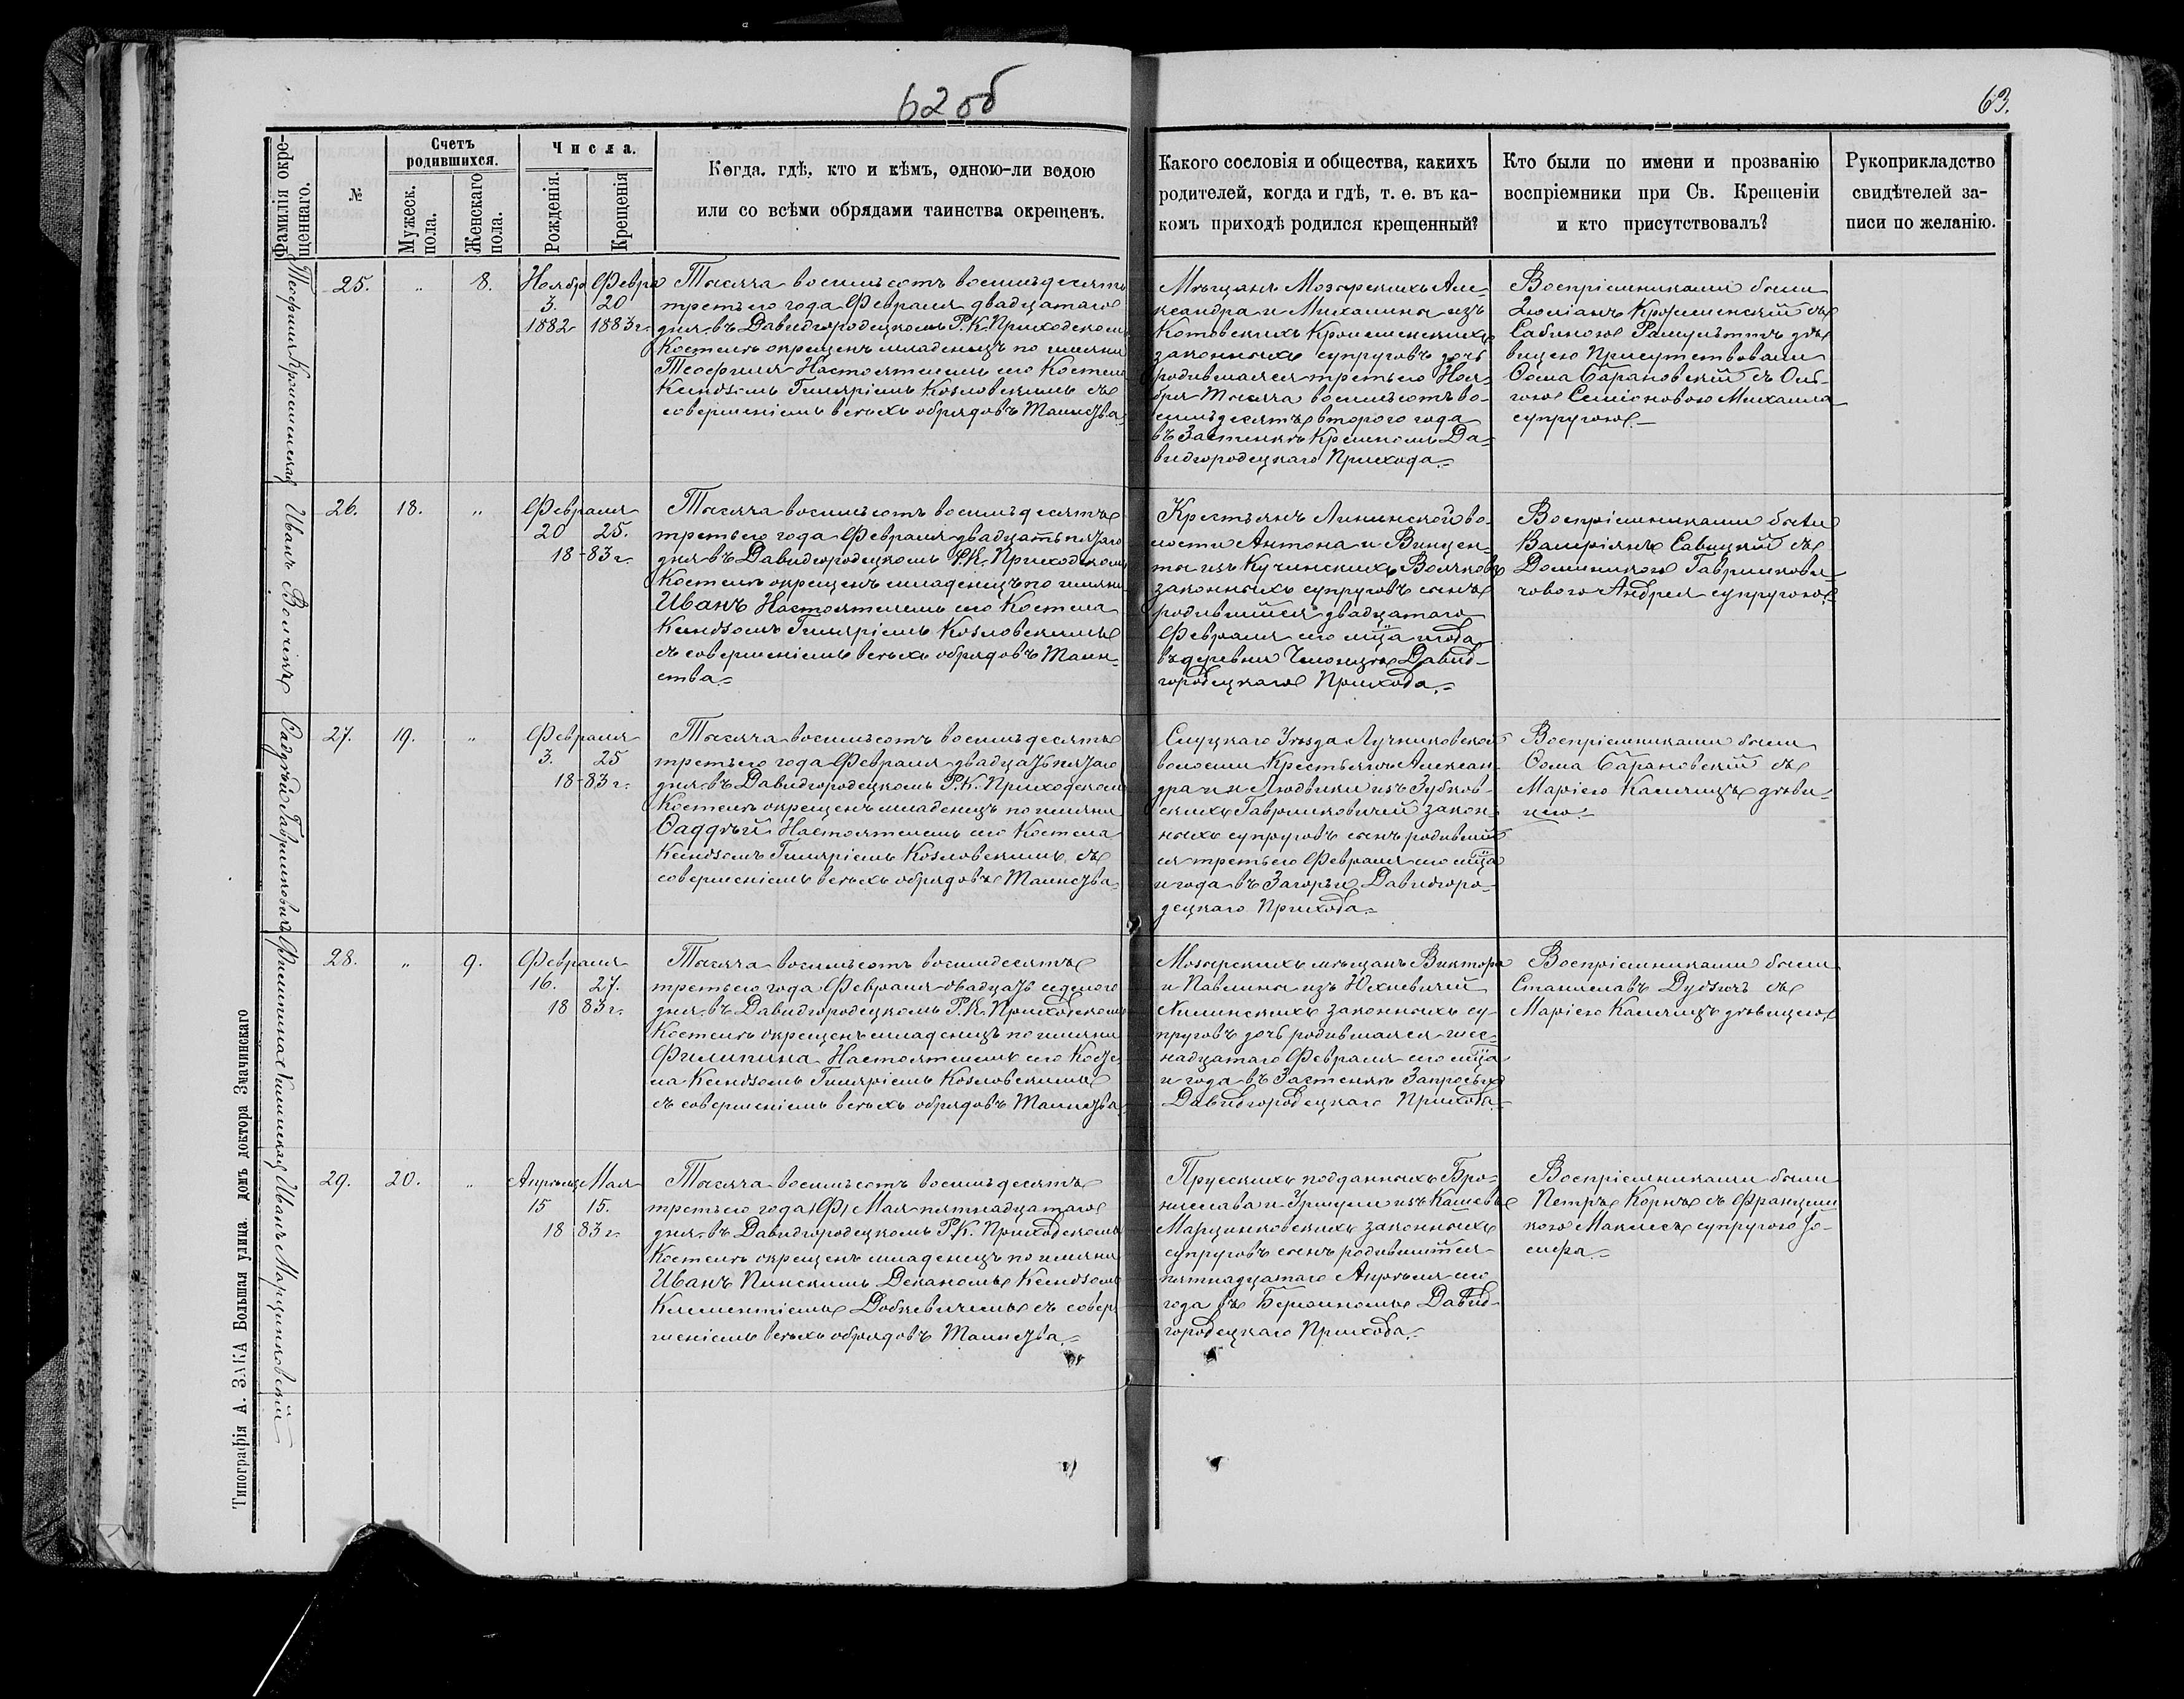 62 об
63.
Фамилія окре-
щенного.
№
Счетъ
родившихся.
Мужеск.
пола.
Женскаго
пола.
Числа.
Рожденія.
Крещенія
Когда, гдѣ, кто и кѣмъ, одною-ли водою
или со всѣми обрядами таинства окрещенъ.
Какого сословія и общества, какихъ
родителей, когда и гдѣ, т. е. въ ка-
комъ приходѣ родился крещенный?
Кто были по имени и прозванію
воспріемники при Св. Крещеніи
и кто присутствовалъ?
Рукоприкладство
свидѣтелей за-
писи по желанію.
Теофиля
25. " 8. Ноябр Февра
3. 20
1882 1883 г.
Тысяча восемьсотъ восемьдесятъ
третьего года Февраля двадцатаго
дня въ Давидгородецкомъ Р. К. Приходскомъ
Костелѣ окрещенъ младенецъ по имяни
Теофиля Настоятелемъ его Костела
Ксендзомъ Гиляріемъ Козловскимъ съ
совершеніемъ всѣхъ обрядовъ Таинства
Мѣщанъ Мозырскихъ Але-
ксандра и Михалины изъ
Котовскихъ
законныхъ супруговъ дочь
родившаяся третьего Ноя-
бря Тысяча восемьсотъ во-
семьдесятъ второго года
въ Застенкѣ Да-
видгородецкаго Прихода.
Воспріемниками были
съ
Сабиною дѣ-
вицею Присутствовали
Ѳома Барановскій съ
Михаила
супругою.
Иванъ
26. 18. " Февраля
20 25.
18-83 г.
Тысяча восемьсотъ восемьдесятъ
третьего года Февраля двадцать пятаго
дня въ Давидгородецкомъ Р. К. Приходскомъ
Костелѣ окрещенъ младенецъ по имяни
Иванъ Настоятелемъ его Костела
Ксендзомъ Гиляріемъ Козловскимъ
съ совершеніемъ всѣхъ обрядовъ Таин-
ства.
Крестьянъ во-
лости Антона и Винцен-
ты изъ Кучинскихъ
законныхъ супруговъ сынъ
родившийся двадцатаго
Февраля его мца и года
въ деревни Давид-
городецкаго Прихода.
Воспріемниками были
Валеріянъ Савицкій съ
Доминикою Гавриловичовою
Андрея супругою.
Фаддѣй Гавриловичъ
27. 19. " Февраля
3. 25
18-83 г.
Тысяча восемьсотъ восемьдесятъ
третьего года Февраля двадцать пятаго
дня въ Давидгородецкомъ Р. К. Приходскомъ
Костелѣ окрещенъ младенецъ по имяни
Ѳаддѣй Настоятелемъ его Костела
Ксендзомъ Гиляріемъ Козловскимъ съ
совершеніемъ всѣхъ обрядовъ Таинства
Слуцкаго Уѣзда Лучниковской
волости Крестьянъ Алексан-
дра и Людвики изъ Зубков-
скихъ закон-
ныхъ супруговъ сынъ родивший
ся третьего Февраля его мца
и года въ Загорьи Давидгоро-
децкаго Прихода.
Воспріемниками были
Ѳома Барановскій съ
Маріею дѣви-
цею.
Филипина
28. " 9. Февраля
16. 27.
18 83 г.
Тысяча восемьсотъ восемдесятъ
третьего года Февраля двадцать седмого
дня въ Давидгородецкомъ Р. К. Приходскомъ
Костелѣ окрещенъ младенецъ по имяни
Филипина Настоятелемъ его Косте
ла Ксендзомъ Гиляріемъ Козловскимъ
съ совершеніемъ всѣхъ обрядовъ Таинства
Мозырскихъ мѣщанъ Виктора
и Павлины изъ Юхневичей
законныхъ су-
пруговъ дочь родившаяся шес-
надцатаго Февраля его мца
и года въ Застенкѣ
Давидгородецкаго Прихода.
Воспріемниками были
Станиславъ съ
Маріею дѣвицею.
Иванъ Марцинковскій
29. 20. " Апрѣля Мая
15 15.
18-83 г.
Тысяча восемьсотъ восемьдесятъ
третьего года Мая пятнадцатаго
дня въ Давидгородецкомъ Р. К. Приходскомъ
Костелѣ окрещенъ младенецъ по имяни
Иванъ Пинскимъ Деканомъ Ксендзомъ
Климентіемъ съ совер-
шеніемъ всѣхъ обрядовъ Таинства.
Прусскихъ подданныхъ Бро-
нислава и изъ
Марцинковскихъ законныхъ
супруговъ сынъ родившийся
пятнадцатаго Апрѣля его
года въ Давид-
городецкаго Прихода.
Воспріемниками были
Петръ съ Францишкою
супругою Іо-
сифа.
Типографія А. ЗАКА Большая улица домъ доктора Значинскаго